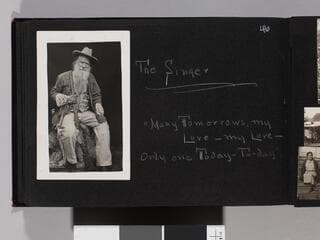 46
The Singer
"Many Tomorrows, my
Love — my Love —
Only one Today — To-day"